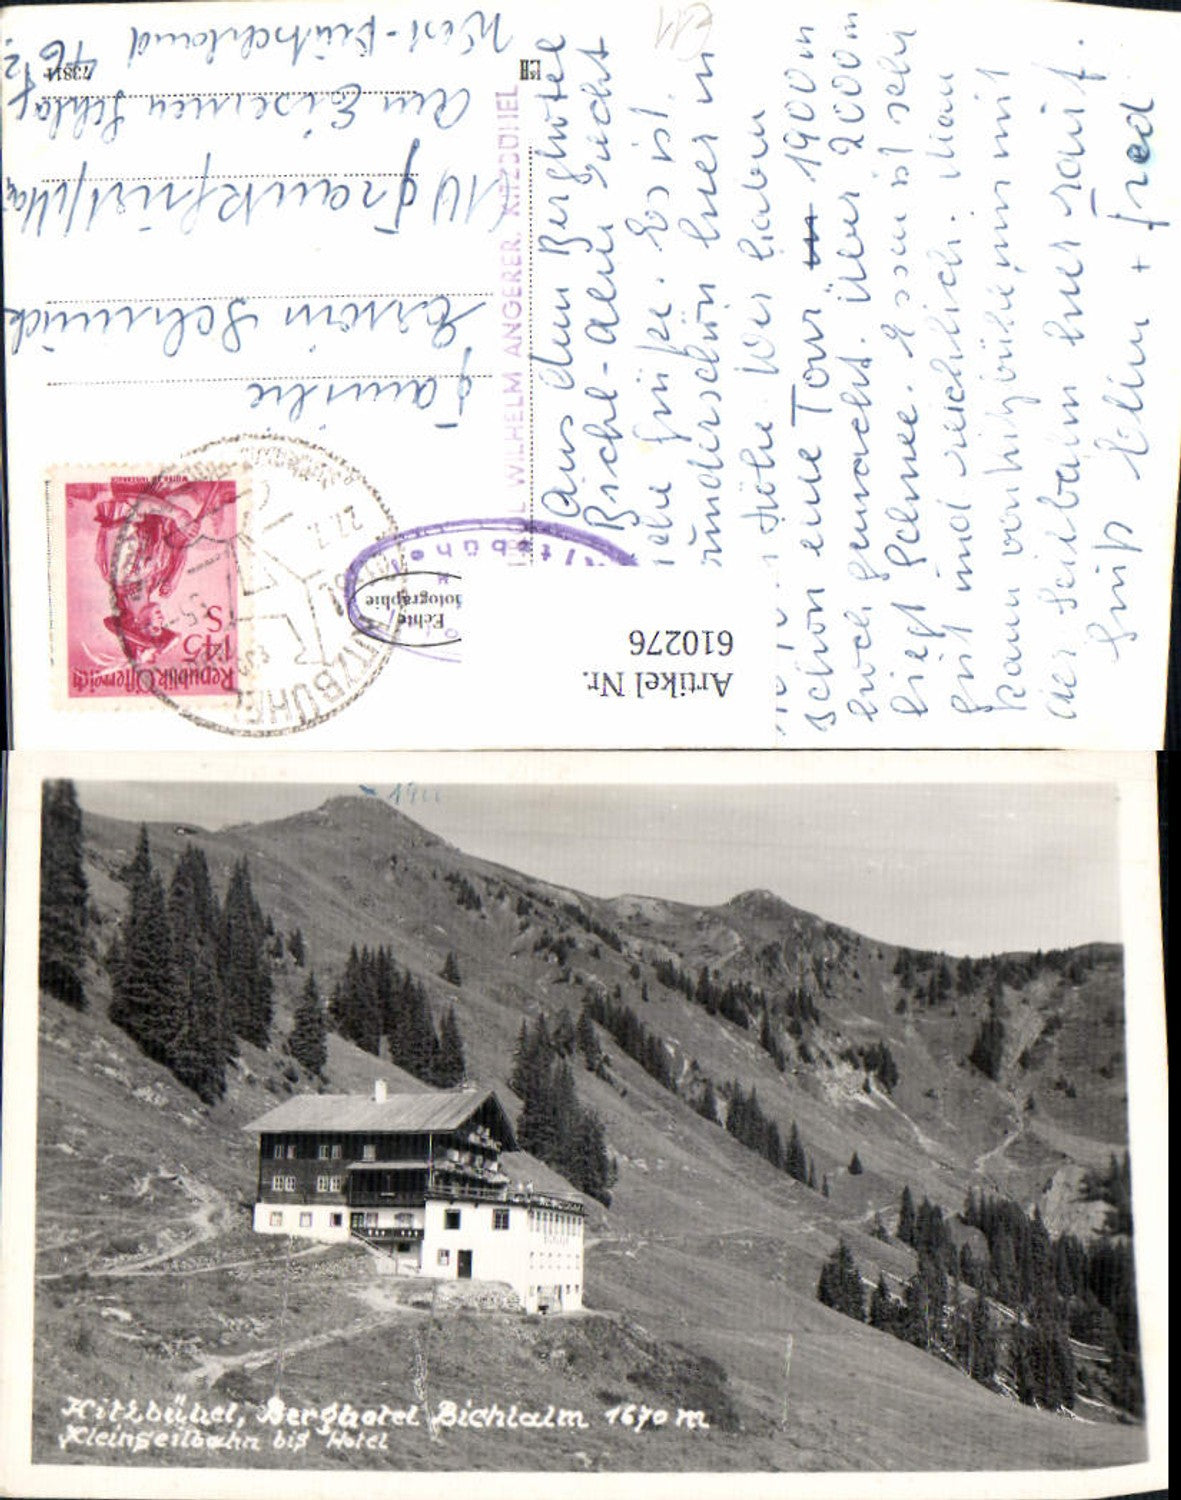 Aus dem Berghotel
Bichl-Alm recht
liebe Grüße. Es ist
wunderschön hier in
Höhe. Wir haben
schon eine Tour 1900 m
hoch gemacht. über 2000 m
liegt Schnee. Essen ist sehr
gut und reichlich. Man
kann von Kitzbühel nun mit
der Seilbahn hier rauf.
Gruß Ellen + Fred
Familie
Erwin Schmück
W Frankfurt/Main
Am Eisernen Schlag
West-Deutschland 46
73811
WILHELM ANGERER, KITZBÜHEL
Echte
Photographie
Republik Österreich
1.45
S
KITZBÜHEL
Artikel Nr.
610276
1900
Kitzbühel, Berghotel Bichlalm 1670 m
Kleinseilbahn bis Hotel